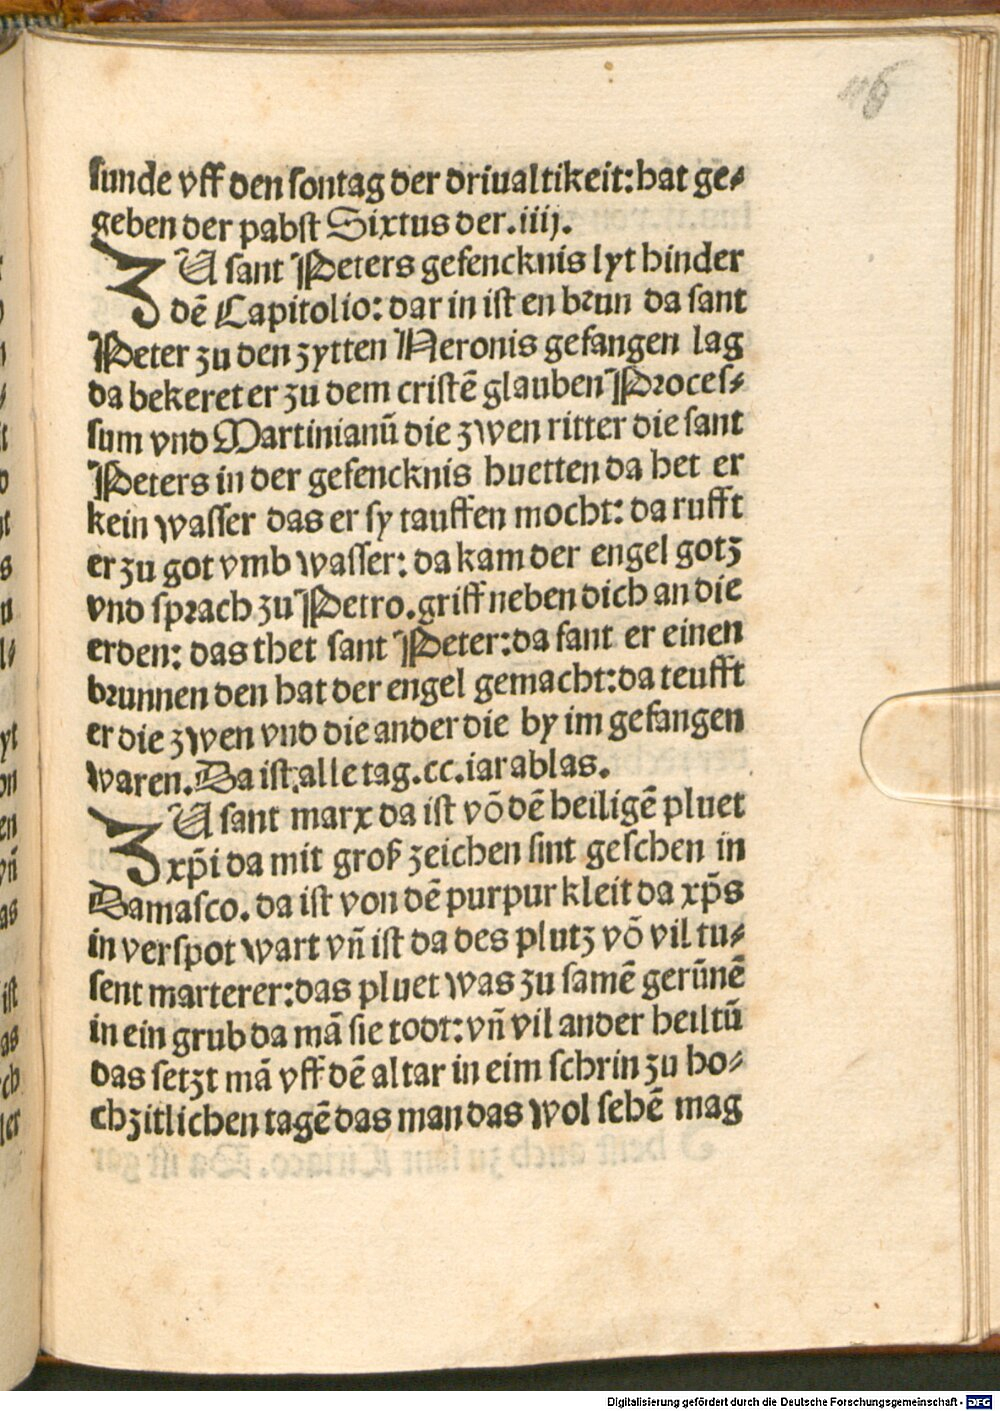 116
sunde vff den sontag der driualtikeit: hat ge⸗
geben der pabst Sixtus der .iiij.
ZU sant Peters gefencknis lyt hinder
dē Capitolio: dar in ist en brun da sant
Peter zu den zytten Neronis gefangen lag
da bekeret er zu dem cristē glauben Proces⸗
sum vnd Martinianū die zwen ritter die sant
Peters in der gefencknis huetten da het er
kein wasser das er sy tauffen mocht: da rufft
er zu got vmb wasser: da kam der engel gotz
vnd sprach zu Petro. griff neben dich an die
erden: das thet sant Peter: da fant er einen
brunnen den hat der engel gemacht: da teufft
er die zwen vnd die ander die by im gefangen
waren. Da ist alle tag .cc. iar ablas.
ZU sant marx da ist vō dē heiligē pluet
xp̄i da mit groß zeichen sint geschen in
Damasco. da ist von dē purpur kleit da xp̄s
in verspot wart vn̄ ist da des plutz vō vil tu⸗
sent marterer: das pluet was zu samē gerūnē
in ein grub da mā sie todt: vn̄ vil ander heiltū
das setzt mā vff dē altar in eim schrin zu ho⸗
chzitlichen tagē das man das wol sehē mag
Digitalisierung gefördert durch die Deutsche Forschungsgemeinschaft - DFG